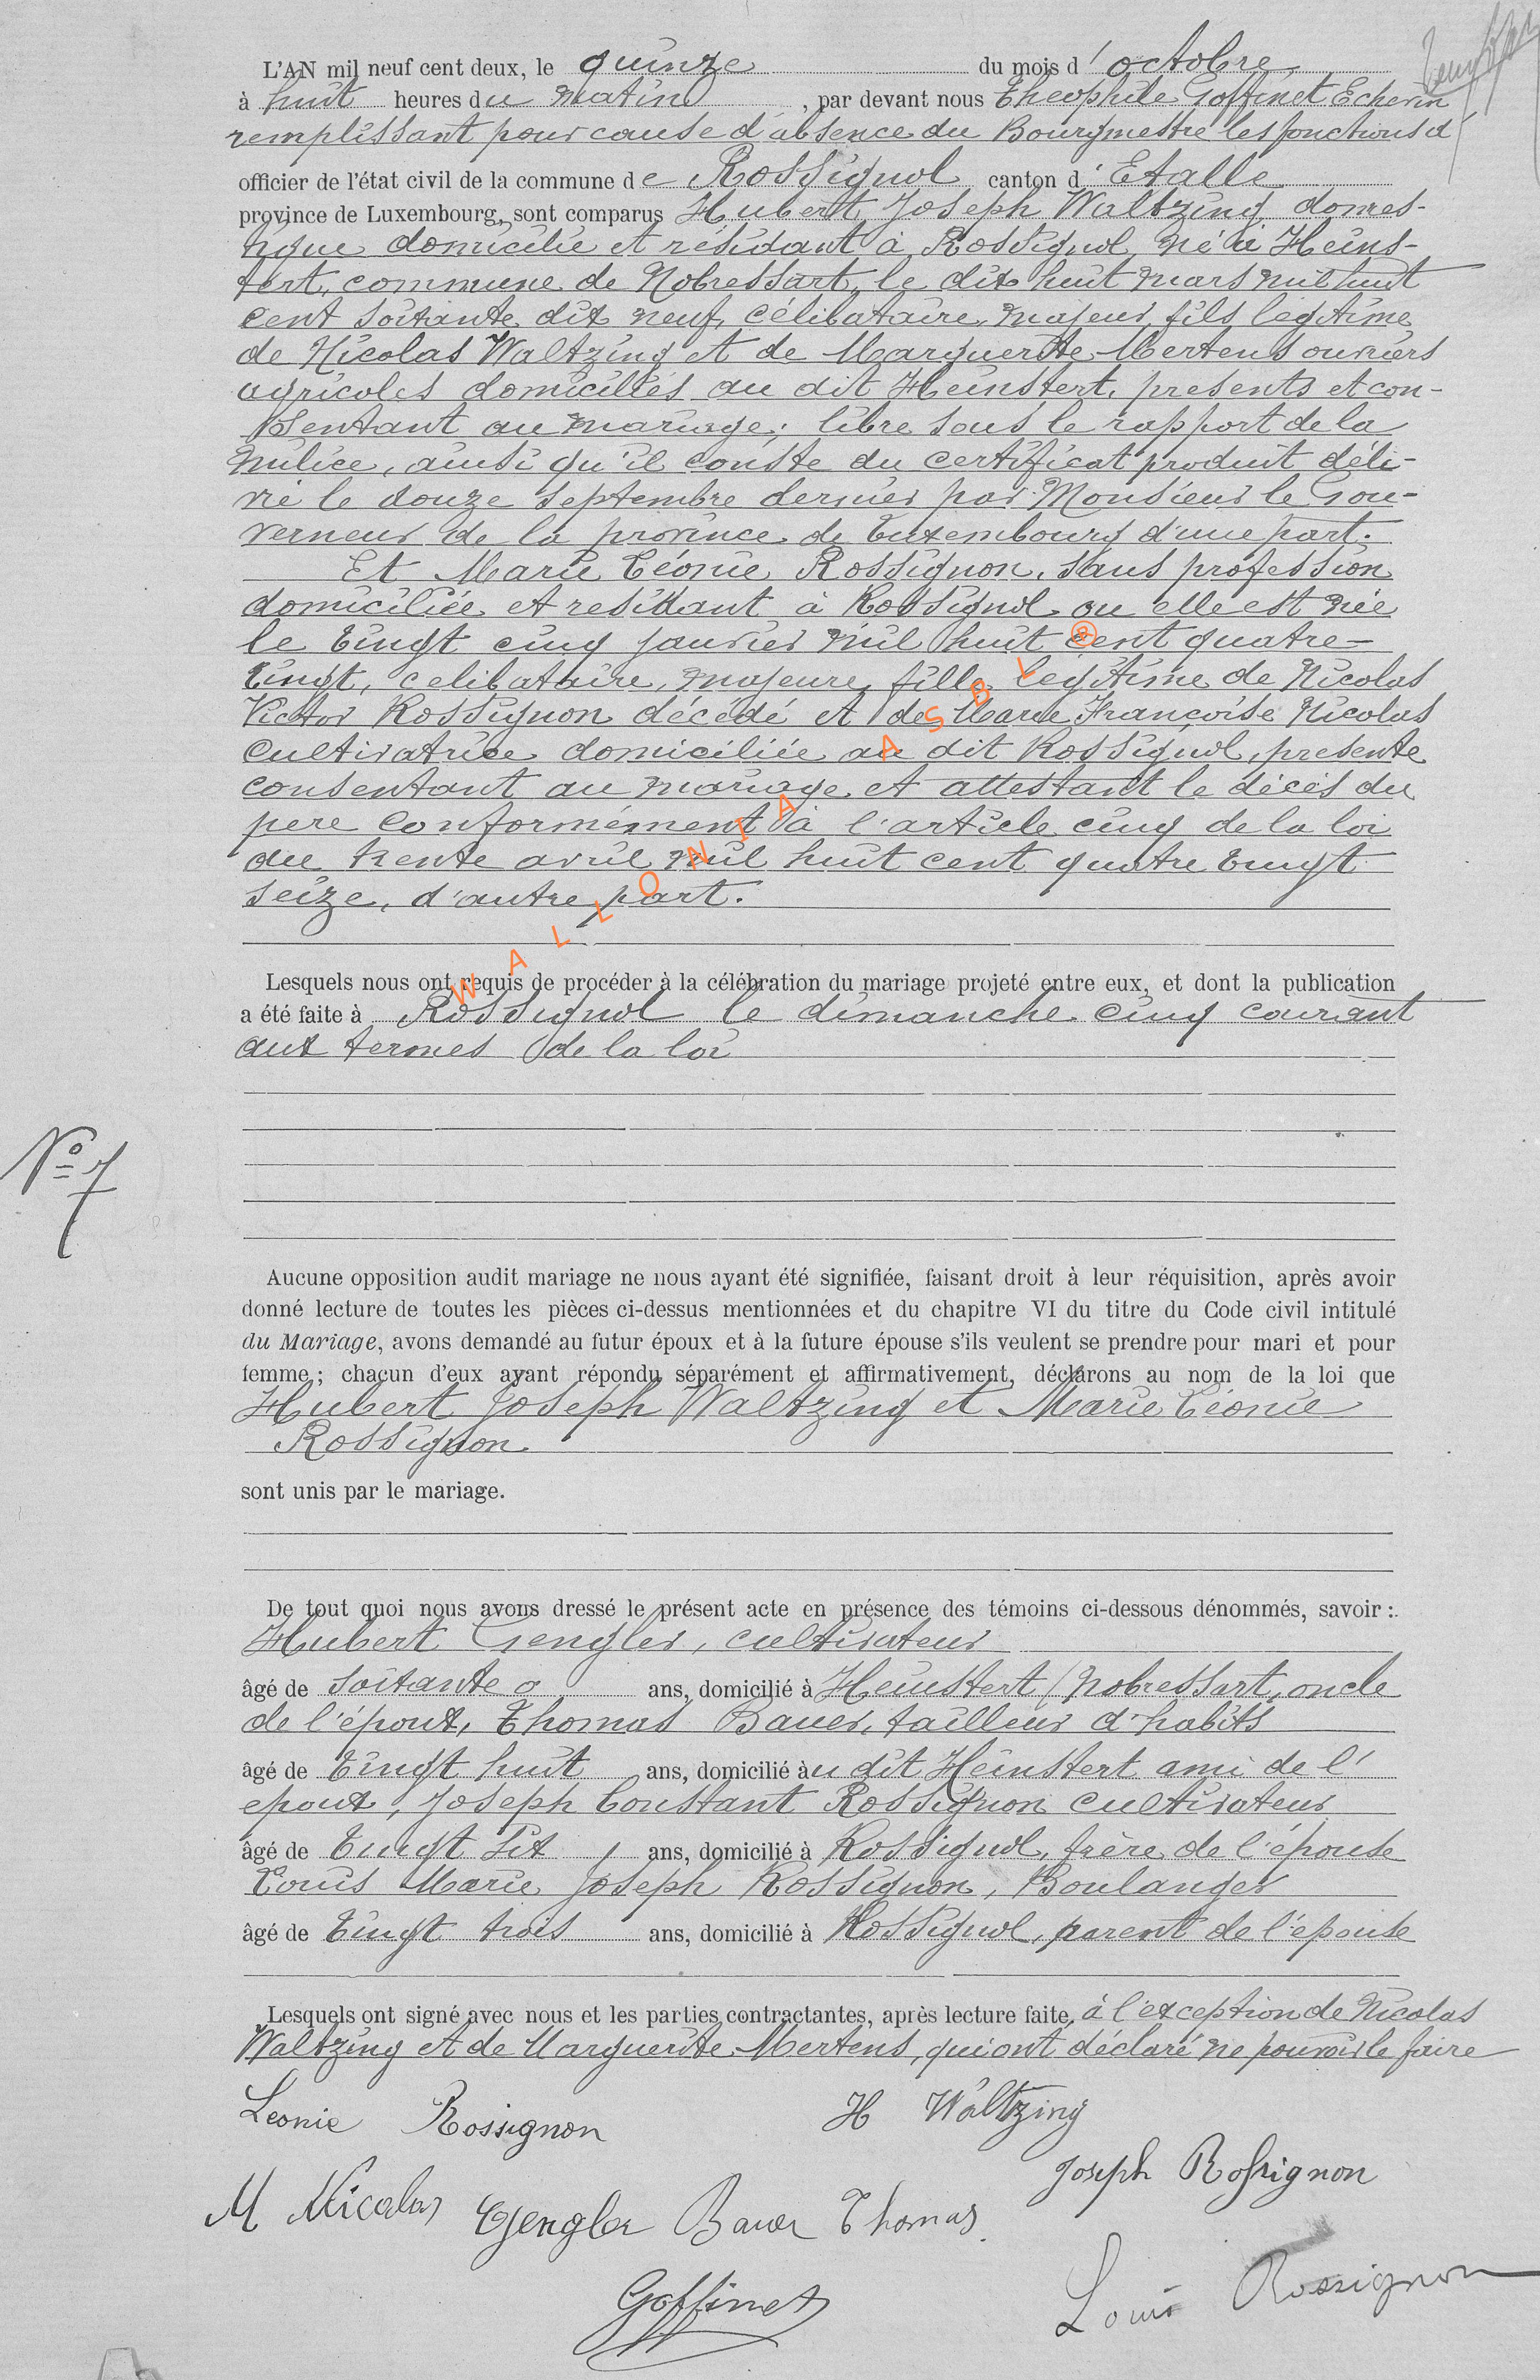 L'AN mil neuf cent deux, le quinze du mois d'octobre
à huit heures du matin, par devant nous Théophile Goffinet Echevin
remplissant pour cause d'absence du Bourgmestre les fonctions d'
officier de l'état civil de la commune de Rossignol canton d'Etalle
province de Luxembourg, sont comparus Hubert Joseph Waltzing, domes-
tique domicilié et résidant à Rossignol, né à Heins-
tert, commune de Nobressart, le dix huit mars mil huit
cent soixante dix neuf, célibataire, majeur, fils légitime
de Nicolas Waltzing et de Marguerite Mertens ouvriers
agricoles domiciliés au dit Heinstert, présents et con-
sentant au mariage; libre sous le rapport de la
milice, ainsi qu'il conste du certificat produit déli-
vré le douze septembre dernier par Monsieur le Gou-
verneur de la province de Luxembourg d'une part.
Et Marie Léonie Rossignon, sans profession
domiciliée et résidant à Rossignol ou elle est née
le vingt cinq janvier mil huit cent quatre-
vingt, célibataire, majeure, fille légitime de Nicolas
Victor Rossignon décédé et de Marie Françoise Nicolas
cultivatrice domiciliée au dit Rossignol, présente
consentant au mariage et attestant le décès du
père conformément à l'article cinq de la loi
du trente avril mil huit cent quatre vingt
seize, d'autre part.
WALLONIA ASBL ®
Lesquels nous ont requis de procéder à la célébration du mariage projeté entre eux, et dont la publication
a été faite à Rossignol le dimanche cinq courant
aux termes de la loi
Nº 7
Aucune opposition audit mariage ne nous ayant été signifiée, faisant droit à leur réquisition, après avoir
donné lecture de toutes les pièces ci-dessus mentionnées et du chapitre VI du titre du Code civil intitulé
du Mariage, avons demandé au futur époux et à la future épouse s'ils veulent se prendre pour mari et pour
femme; chacun d'eux ayant répondu séparément et affirmativement, déclarons au nom de la loi que
Hubert Joseph Waltzing et Marie Léonie
Rossignon
sont unis par le mariage.
De tout quoi nous avons dressé le présent acte en présence des témoins ci-dessous dénommés, savoir :
Hubert Gengler, cultivateur
âgé de soixante ans, domicilié à Heinstert (Nobressart, oncle
de l'époux, Thomas Bauer, tailleur d'habits
âgé de vingt huit ans, domicilié au dit Heinstert ami de l'
epoux, Joseph Constant Rossignon cultivateur
âgé de vingt six ans, domicilié à Rossignol, frère de l'épouse
Louis Marie Joseph Rossignon, Boulanger
âgé de vingt trois ans, domicilié à Rossignol, parent de l'épouse
Lesquels ont signé avec nous et les parties contractantes, après lecture faite, à l'exception de Nicolas
Waltzing et de Marguerite Mertens, qui ont déclaré ne pouvoir le faire
Leonie Rossignon H Waltzing
Joseph Rossignon
M Nicolas Gengler Bauer Thomas
Goffinet
Louis Rossignon